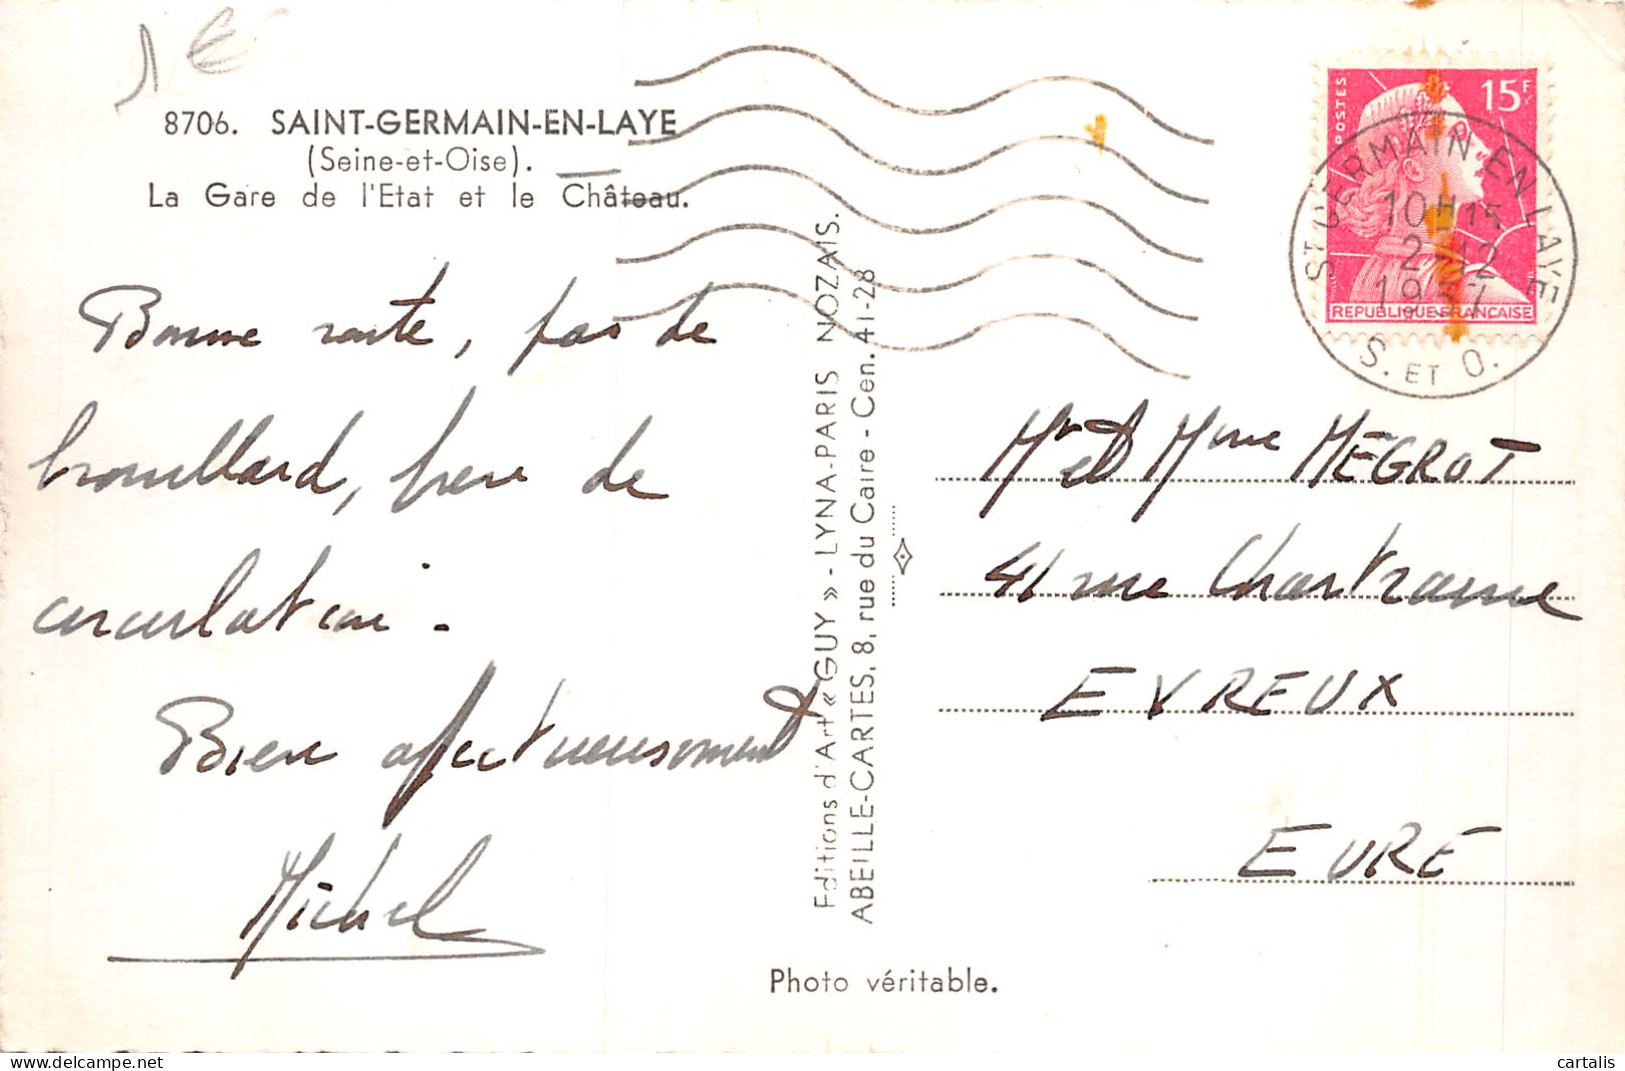 1 €
8706. SAINT-GERMAIN-EN-LAYE
(Seine-et-Oise).
La Gare de l'Etat et le Château.
Bonne route, pas de
brouillard, peu de
circulation.
Bien affectueusement
Michel
Editions d'Art « GUY » - LYNA-PARIS NOZAIS.
ABEILLE-CARTES, 8, rue du Caire - Cen. 41-28
Photo véritable.
POSTES
15F
REPUBLIQUE FRANCAISE
ST GERMAIN EN LAYE
10 H 15
2-12
1957
S. ET O.
Mr et Mme MEGROT
41 rue Chartraine
EVREUX
EURE
cartalis